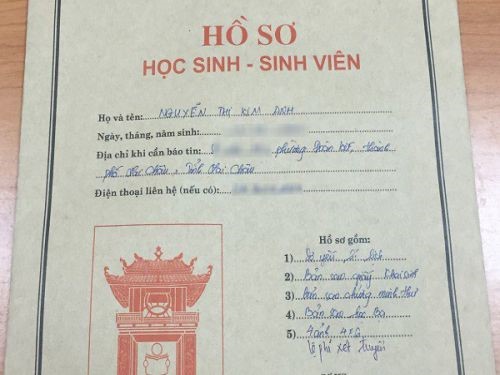 HỒ SƠ
HỌC SINH - SINH VIÊN
Họ và tên: NGUYỄN THỊ KIM ANH
Ngày, tháng, năm sinh:
Địa chỉ khi cần báo tin: phường Đoàn Kết, thành
phố Lai Châu, tỉnh Lai Châu
Điện thoại liên hệ (nếu có):
Hồ sơ gồm:
1) Sơ yếu lý lịch
2) Bản sao giấy khai sinh
3) Bản sao chứng minh thư
4) Bản sao học bạ
5) 4 ảnh 4x6
lệ phí xét tuyển